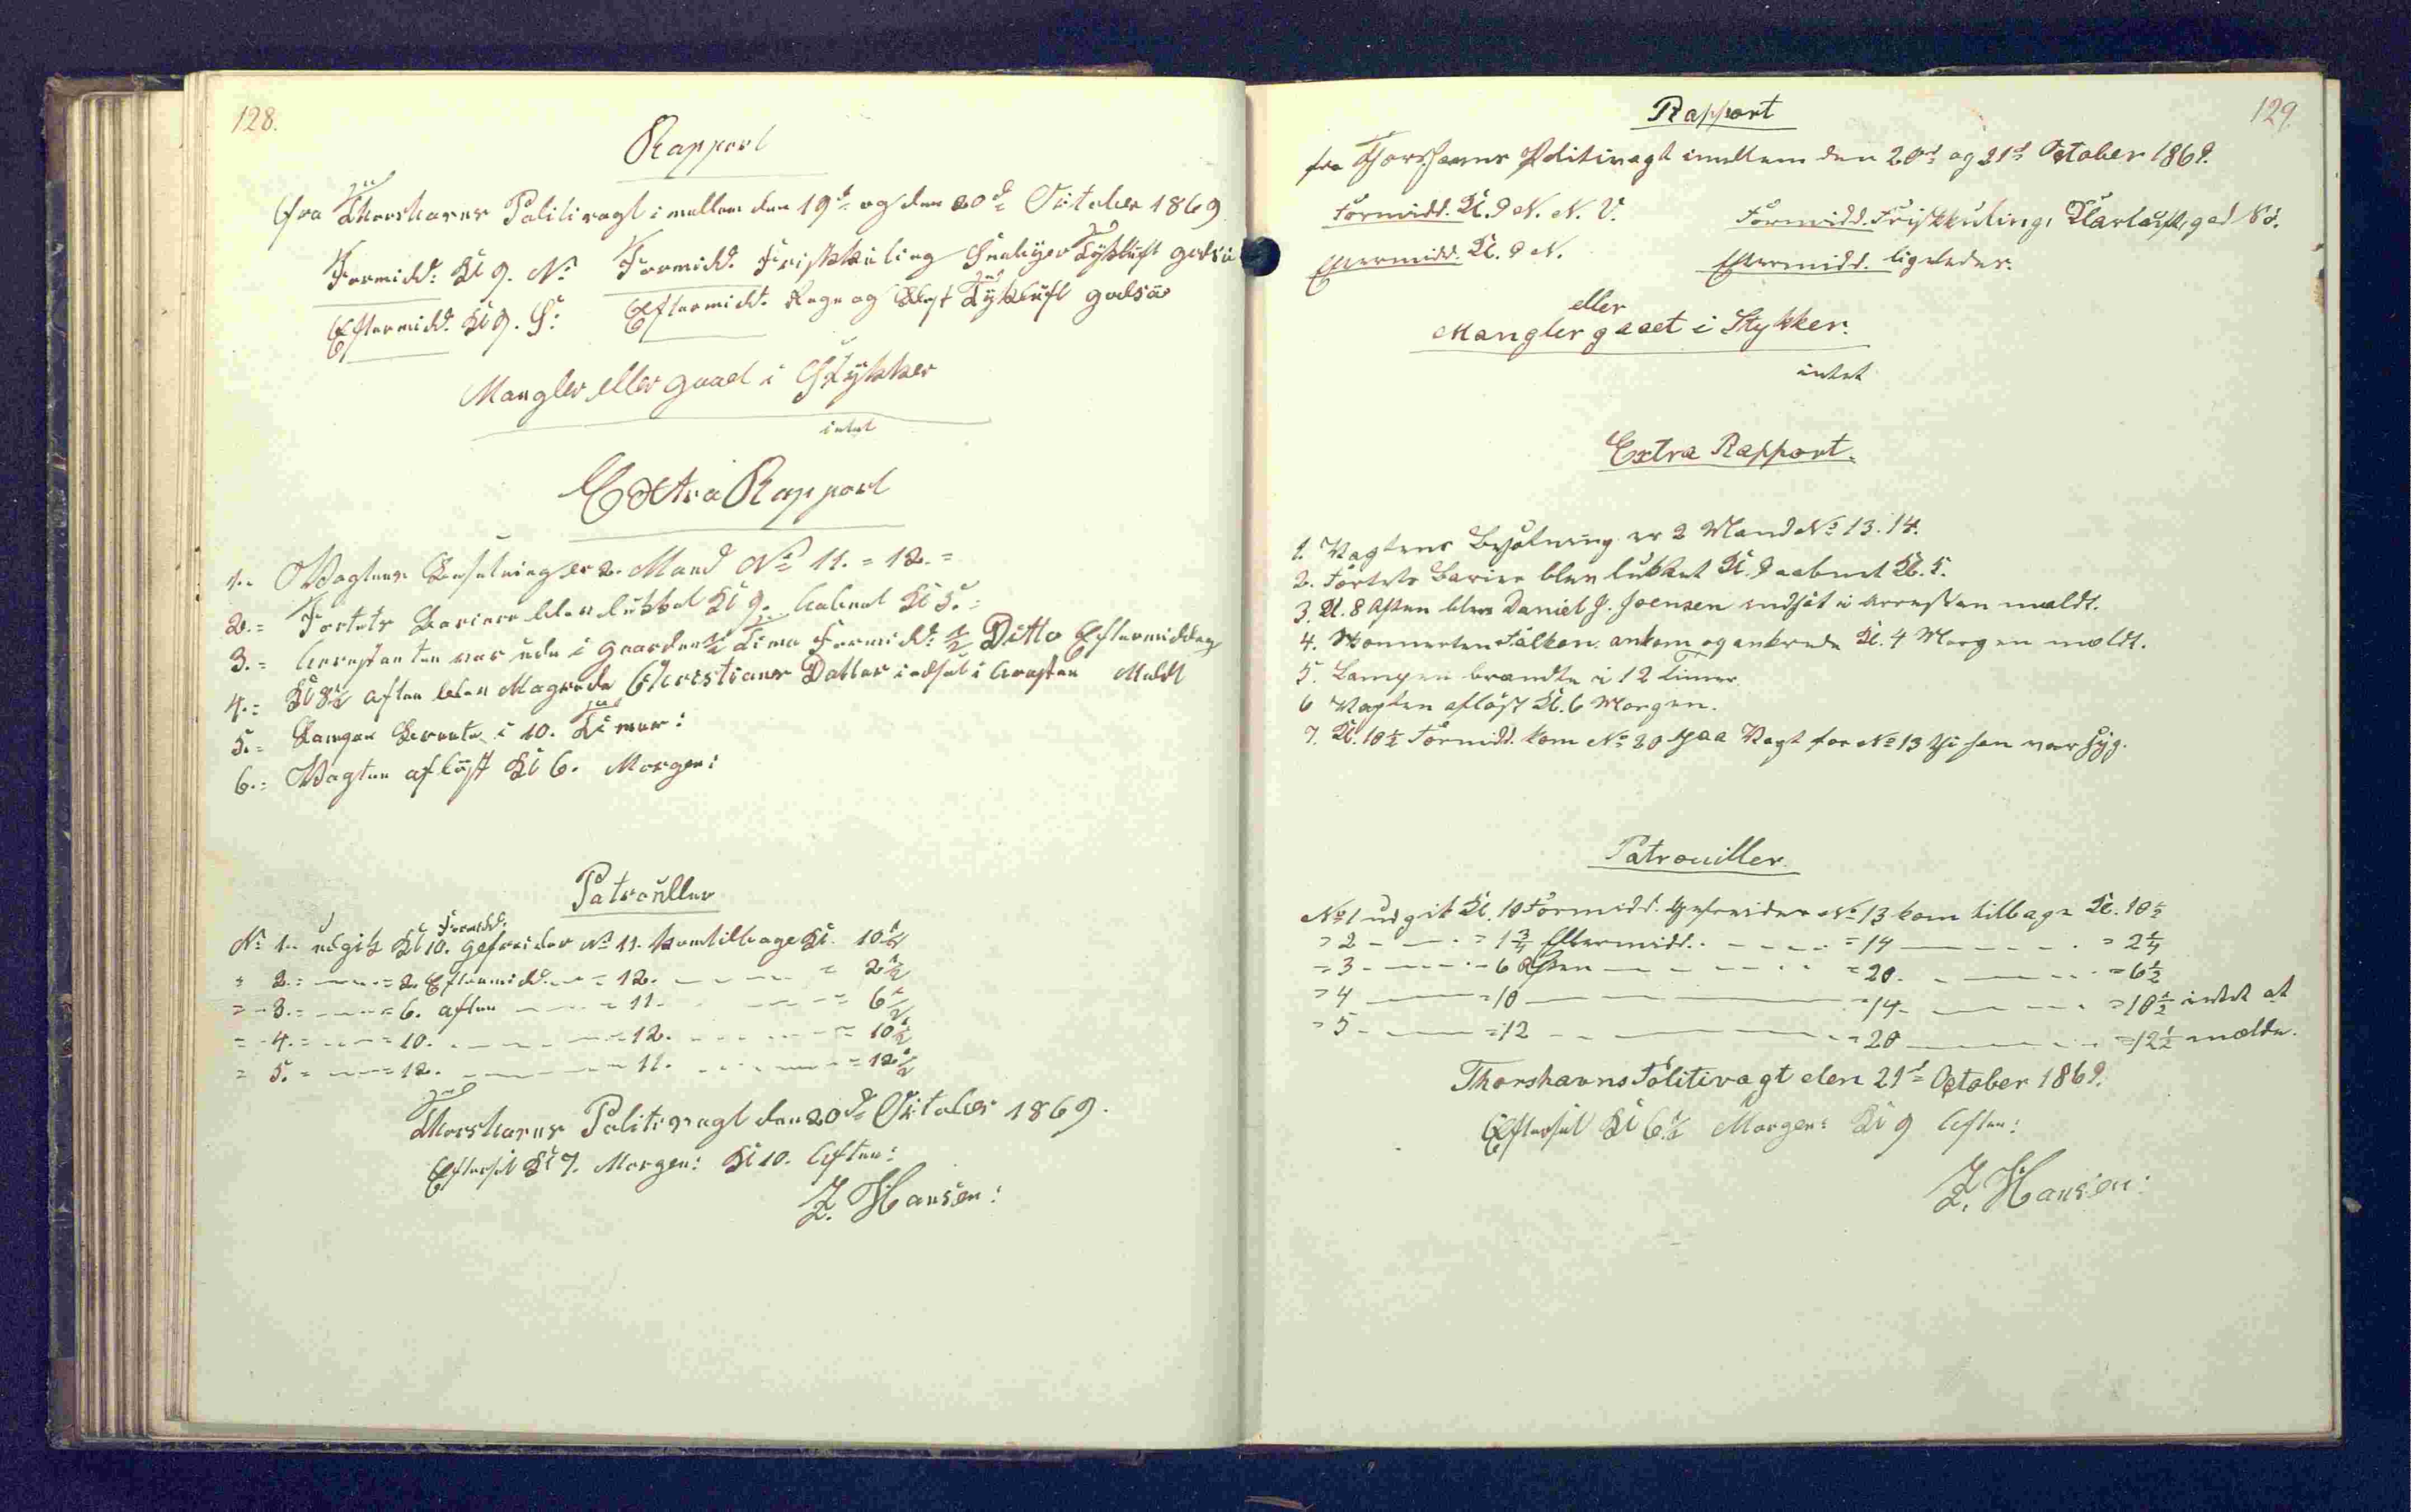 128.
Rapport
fra Thorshavns Politivagt imellem den 19de og den 20de October 1869
Formidd: Kl 9. N: Formidd. Friskkuling Snebyer Tykluft god Sø
Eftermidd: Kl 9. S: Eftermidd. Regn og Blæst Tykluft god Sø
Mangler eller gaaet i Stykker
intet
Extra Rapport
1.. Vagtens Besetning er 2. Mand No 11. = 12. =
2. = Fortets Bariere blev lukket Kl 9. Aabnet Kl 5. =
3. = Arrestanten var ude i Gaarden ½ Time Formidd: ½ Ditto Eftermiddag
4. = Kl 8½ Aften blev Magrede Christians Datter indsat i Arresten Meldt
5. = Lampen Brente i 10. Timer:
6. = Vagten afløst Kl 6. Morgen:
Patrouller
No 1.. udgik Kl 10. Formidd. Gefreider No 11. kom tilbage Kl. 10½
" 2. = — = 2. Eftermidd. — = 12. — = 2½
= 3. = — = 6. Aften — = 11. — = 6½
= 4. = — = 10. — = 12. — = 10½
= 5. = — = 12. — = 11. — = 12½
Thorshavns Politivagt den 20de October 1869.
Eftersét Kl 7. Morgen: Kl 10. Aften:
Z. Hansen:
129.
Rapport
fra Thorshavns Politivagt imellem den 20de og 21de October 1869.
Formidd. Kl. 9 N. N. V. Formidd. Friskkuling, Klarluft, god Sø.
Eftermidd. Kl. 9 N. Eftermidd. ligeledes.
eller
Mangler gaaet i Stykker.
intet
Extra Rapport.
1. Vagtens Besætning er 2 Mand No 13. 14.
2. Fortets Bariere blev lukket Kl. 9 aabnet Kl. 5.
3. Kl. 8 Aften blev Daniel J. Joensen indsat i Arresten meldt.
4. Skonnerten Falken ankom og ankrede Kl. 4 Morgen mældt.
5. Lampen brændte i 12 Timer.
6 Vagten afløst Kl. 6 Morgen.
7. Kl. 10½ Formidd. kom No 20 paa Vagt for No 13 thi han var syg.
Patrouiller.
No 1 udgik Kl. 10 Formidd. Gefreider No 13 kom tilbage Kl. 10½
= 2 — = 1¾ Eftermidd. — = 14 — = 2¼
= 3 — = 6 Aften — = 20. — = 6½
= 4 — = 10 — = 14 — = 10½ intet at
= 5 — = 12 — = 20 — = 12½ mælde.
Thorshavns Politivagt den 21de October 1869.
Eftersét Kl 6½ Morgen: Kl 9 Aften:
Z. Hansen: